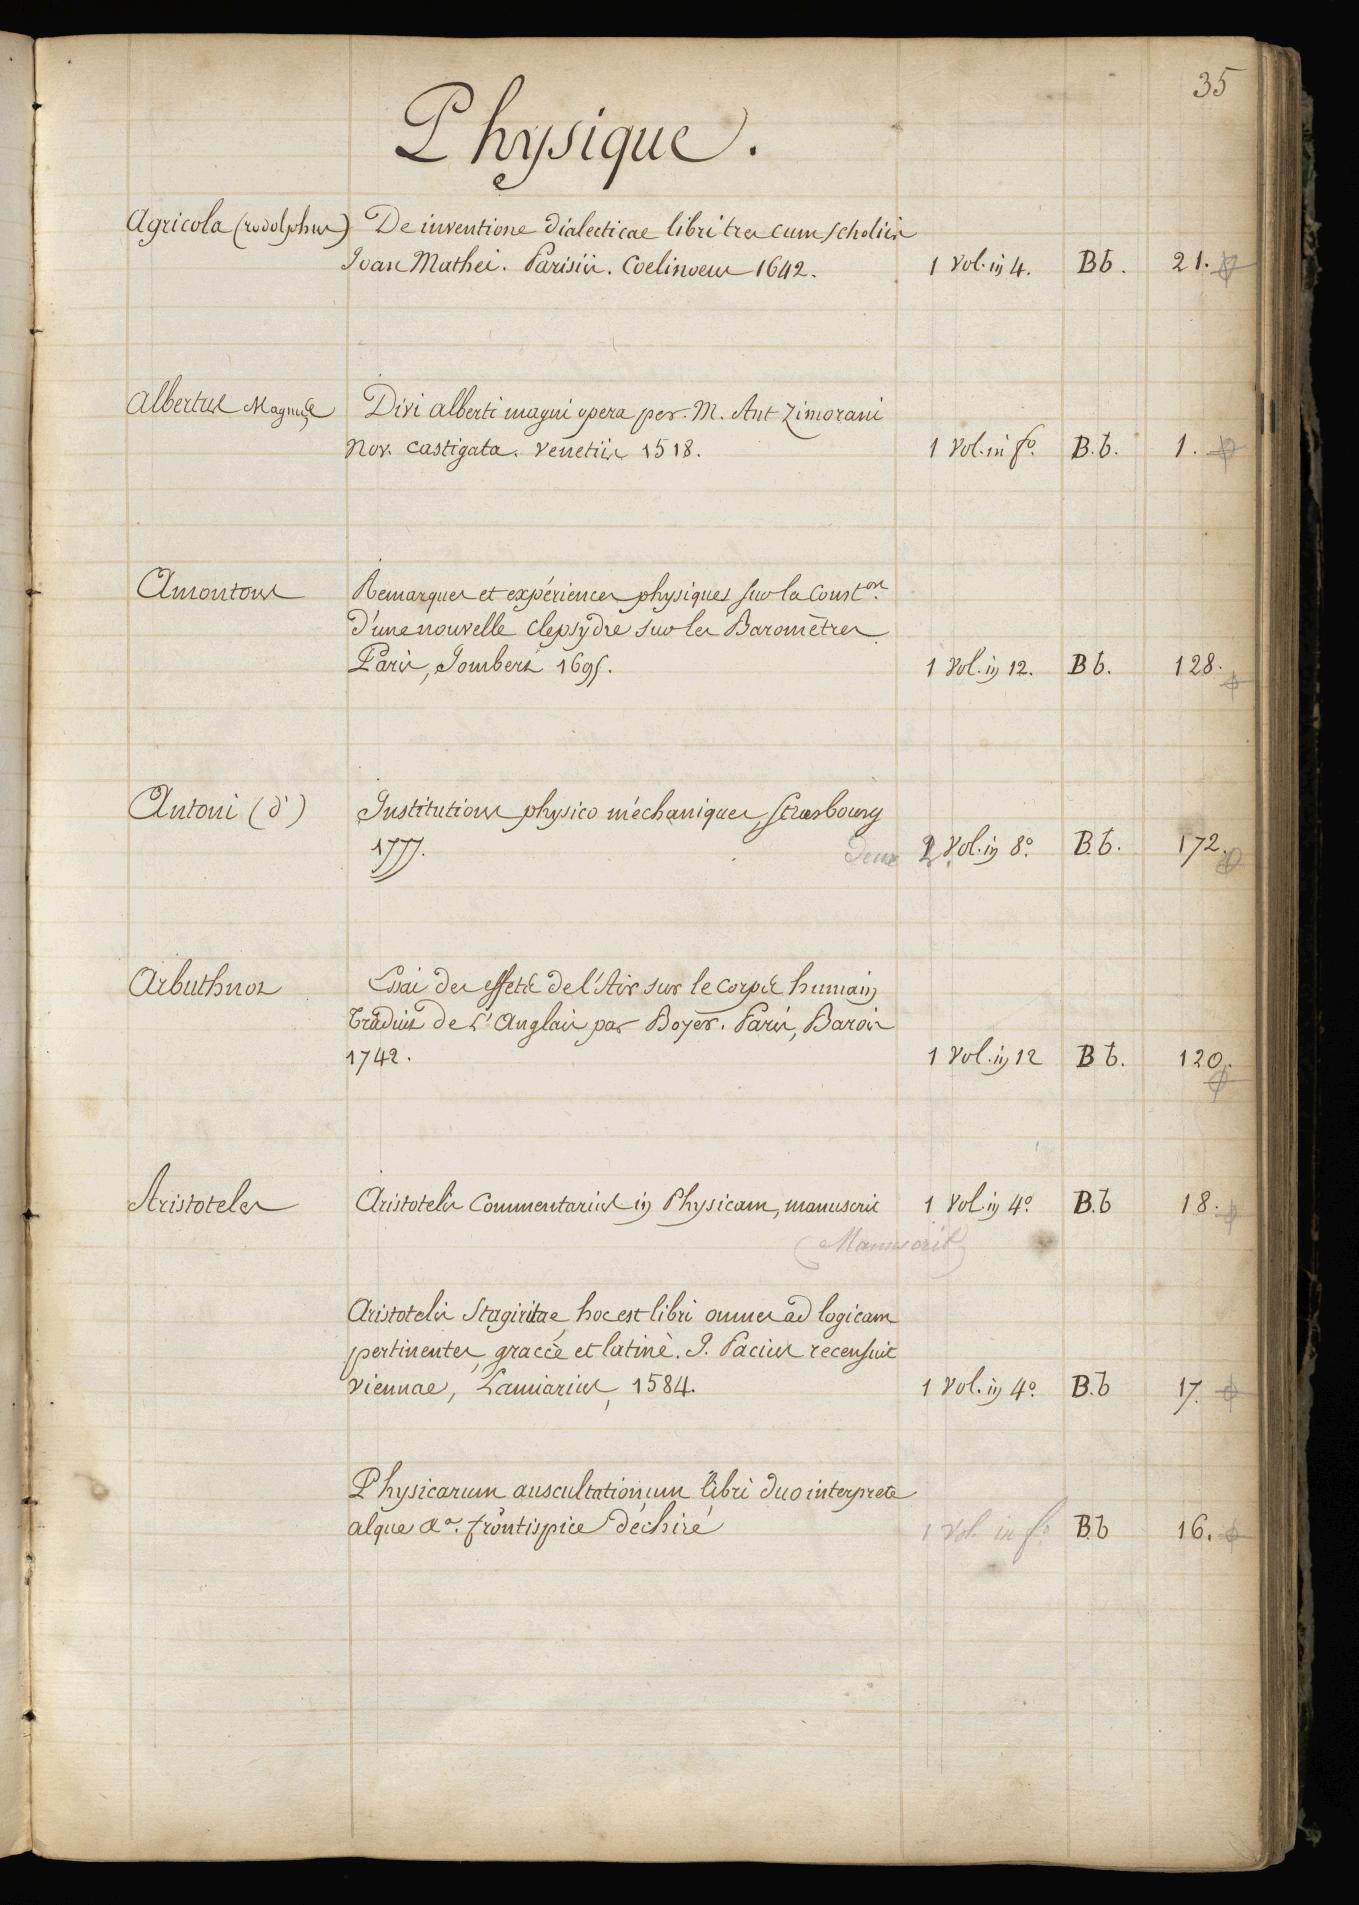 35
Physique.
Agricola (rodolphus) De inventione dialecticae libri tres cum scholiis
Ioan Mathei. Parisiis. Coelinoeus 1642. 1 Vol. in 4. Bb. 21.
Albertus Magnus Divi alberti magni opera per M. Ant Zimorani
Nov. castigata. Venetiis 1518. 1 Vol. in fo. B.b. 1.
Amontons Remarques et expériences physiques sur la Const.on
d'une nouvelle Clepsydre sur les Baromètres
Paris, Jombert 1695. 1 Vol. in 12. Bb. 128.
Antoni (d') Institutions physico méchaniques, Strasbourg
1777. Deux 2 Vol. in 8o. B.b. 172.
Arbuthnot Essai des effets de l'Air sur le corps humain
traduit de L'Anglais par Boyer. Paris, Barois
1742. 1 Vol. in 12 Bb. 120.
Aristoteles Aristotelis Commentarius in Physicam, manuscrit 1 Vol. in 4o. B.b 18.
(Manuscrit)
Aristotelis Stagiritae, hoc est libri omnes ad logicam
pertinentes, graecè et latinè. J. Pacius recensuit
Viennae, Lamiarius, 1584. 1 Vol. in 4o. B.b 17.
Physicarum auscultationum libri duo interprete
alque ao. frontispice déchiré 1 Vol in fo. B.b 16.